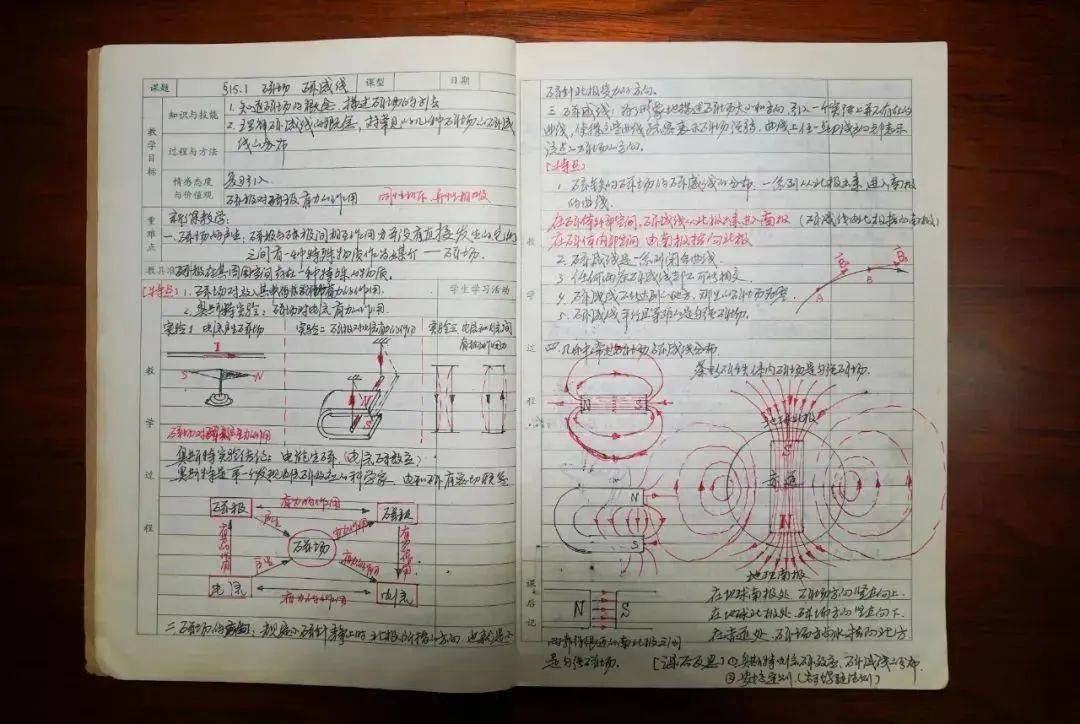 课题 §15.1 磁场 磁感线 课型 日期
教学目标
知识与技能
1. 知道磁场的概念，描述磁场的列表
2. 理解磁感线的概念，对常见的几种磁场的磁感线的分布
过程与方法
情感态度与价值观
复习引入
磁极对磁极有力的作用 同性相斥、异性相吸
重难点
新课教学：
一、磁场的产生：磁极与磁极间相互作用力并没有直接发生的
之间有一种特殊物质作为媒介 — 磁场.
教具准
磁极在其周围空间存在一种特殊的物质。
[特点] 1. 磁场对放入其中的有力的作用.
学生学习活动
2. 奥斯特实验：磁场对电流有力的作用.
实验1 电流生磁场 实验二 磁极对电流有力的作用 实验三 电流和电流间
有相互作用力
I
S N
N
S
磁场对有力的作用
奥斯特实验结论：电能生磁.(电流磁效应)
奥斯特是第一个发现电流磁效应的科学家. 电和磁有密切联系
教学过程
磁极 有力的作用 磁极
产生 有力的作用
有力的作用 磁场 有力的作用
产生 有力的作用
电流 有力的作用 电流
二、磁场的方向：规定小磁针静止时北极所指的方向
磁针北极受力的方向.
三、磁感线：为了形象地描述磁场大小和方向，引入一个实际上并不存在的
曲线，使得这些曲线疏密表示磁场强弱，曲线上任一点切线方向即表示
该点的磁场的方向.
[特点]
1. 磁铁的磁场的磁感线的分布. 一条到从北极出来，进入南极
的曲线.
在磁体外部空间，磁感线从北极出来进入南极 (磁感线由北极指向南极)
在磁体内部空间 由南极指向北极
2. 磁感线是一条闭合曲线.
3. 任何两条磁感线都不可能相交.
4. 磁感线不出现的地方，那里的磁场为零.
5. 磁感线平行且等距的是匀强磁场.
A B
教学过程
四、几种常见的磁场磁感线分布
条形磁铁体内磁场是匀强磁场.
N S
N
S
地理北极
S
赤道
N
地理南极
N S
在地球南极处，磁场方向竖直向上.
在地球北极处，磁场方向竖直向下.
在赤道处，磁场方向水平指向北方
课后记
两靠得很近的南北极之间
是匀强磁场.
[课后反思] ①奥斯特电流磁效应，磁感线的分布
②安培定则(右手螺旋法则)